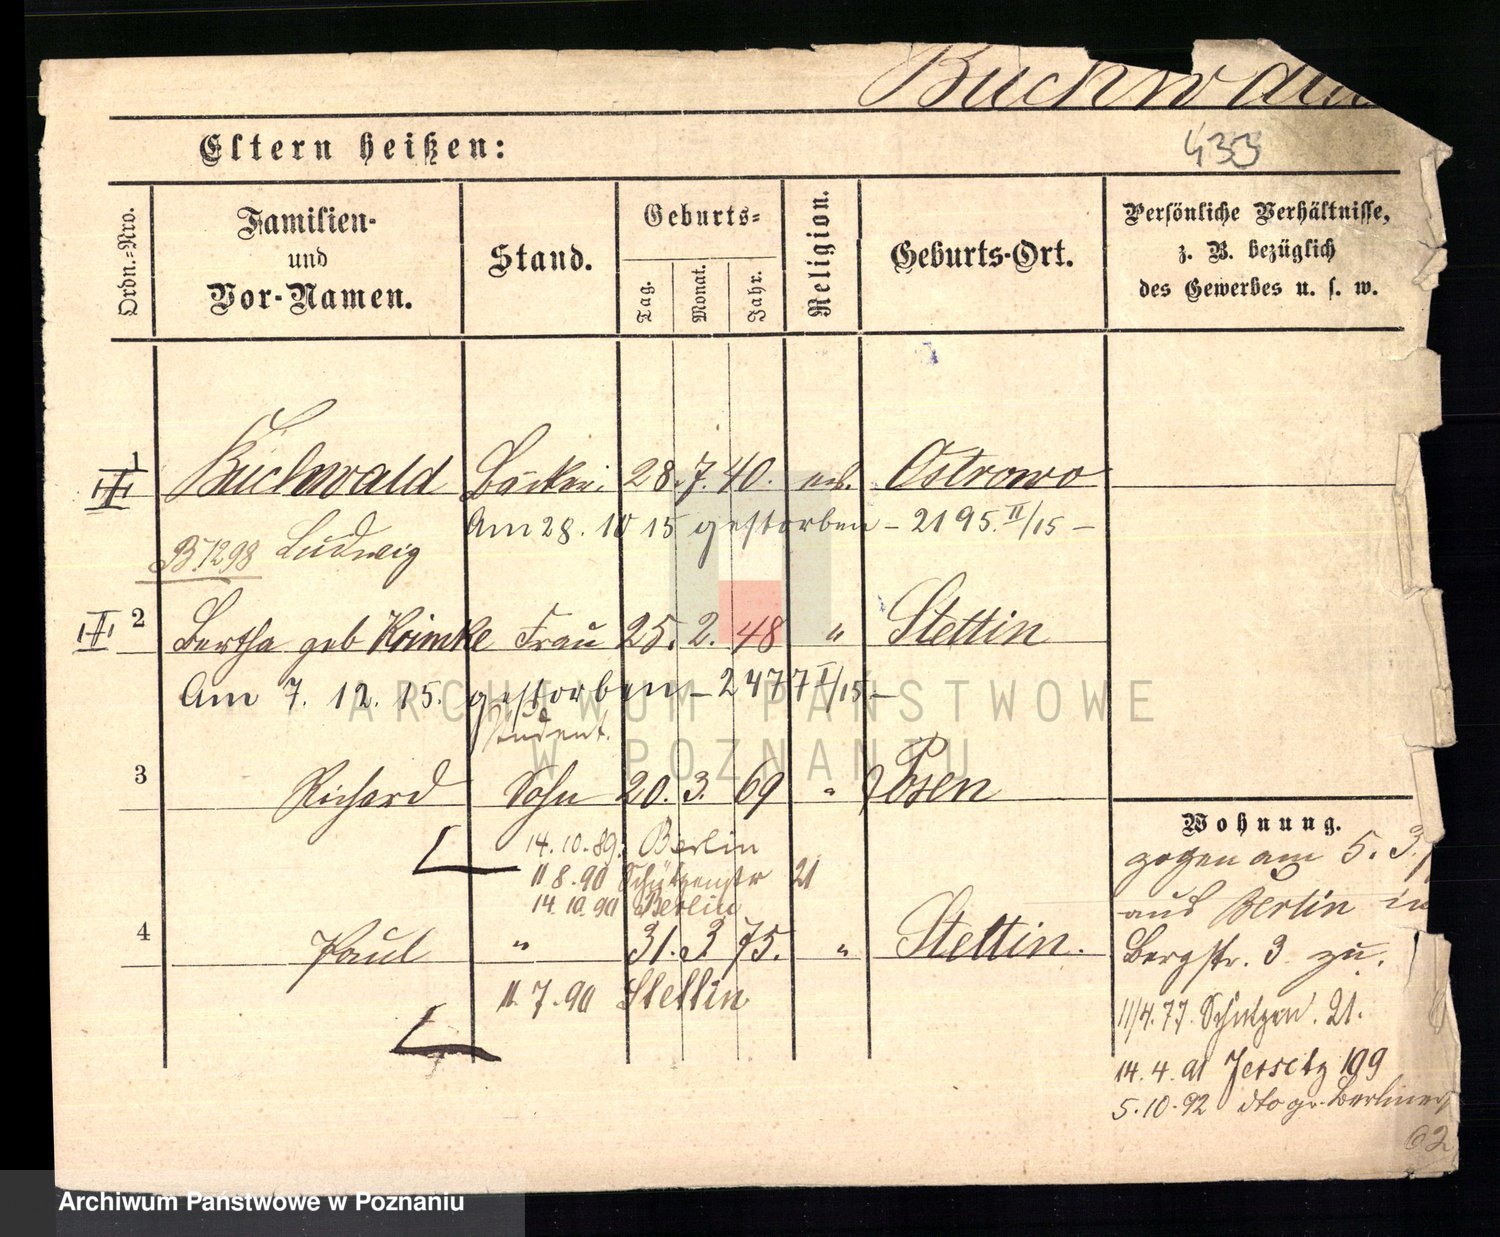 Buchwald
433
Eltern heißen:
Ordn.-Nro.
Familien- und Vor-Namen.
Stand.
Geburts-
Tag.
Monat.
Jahr.
Religion.
Geburts-Ort.
Persönliche Verhältnisse,
z. B. bezüglich
des Gewerbes u. s. w.
1 Buchwald Bäcker 28. 7. 40. ev. Ostrowo
Am 28. 10 15 gestorben - 2195. II/15 -
B1298 Ludwig
II 2 Bertha geb Krimke Frau 25. 2. 48 " Stettin
Am 7. 12. 15. gestorben - 2477 I/15 -
Student.
3 Richard Sohn 20. 3. 69 " Posen
14. 10. 89. Berlin
11 8. 90 Schützenstr 21
14. 10. 90 Berlin
4 Paul " 31. 3 75. " Stettin.
11. 7. 90 Stettin
Wohnung.
zogen am 5. 3.
aus Berlin in
Bergstr. 3 zu.
11/4. 77. Schützen. 21.
14. 4. 91 Jersitz 199
5. 10. 92 dto gr. Berliner
62
ARCHIWUM PAŃSTWOWE
W POZNANIU
Archiwum Państwowe w Poznaniu